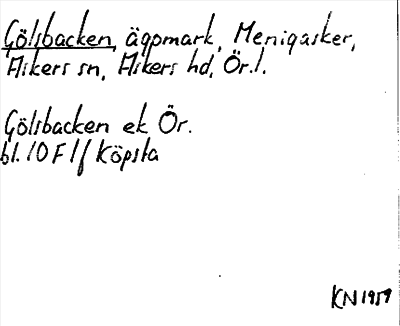 Gölsbacken, ägomark, Menigasker,
Askers sn, Askers hd, Ör.l.
Gölsbacken ek Ör.
bl. 10 F 1 f Köpsta
KN 1959